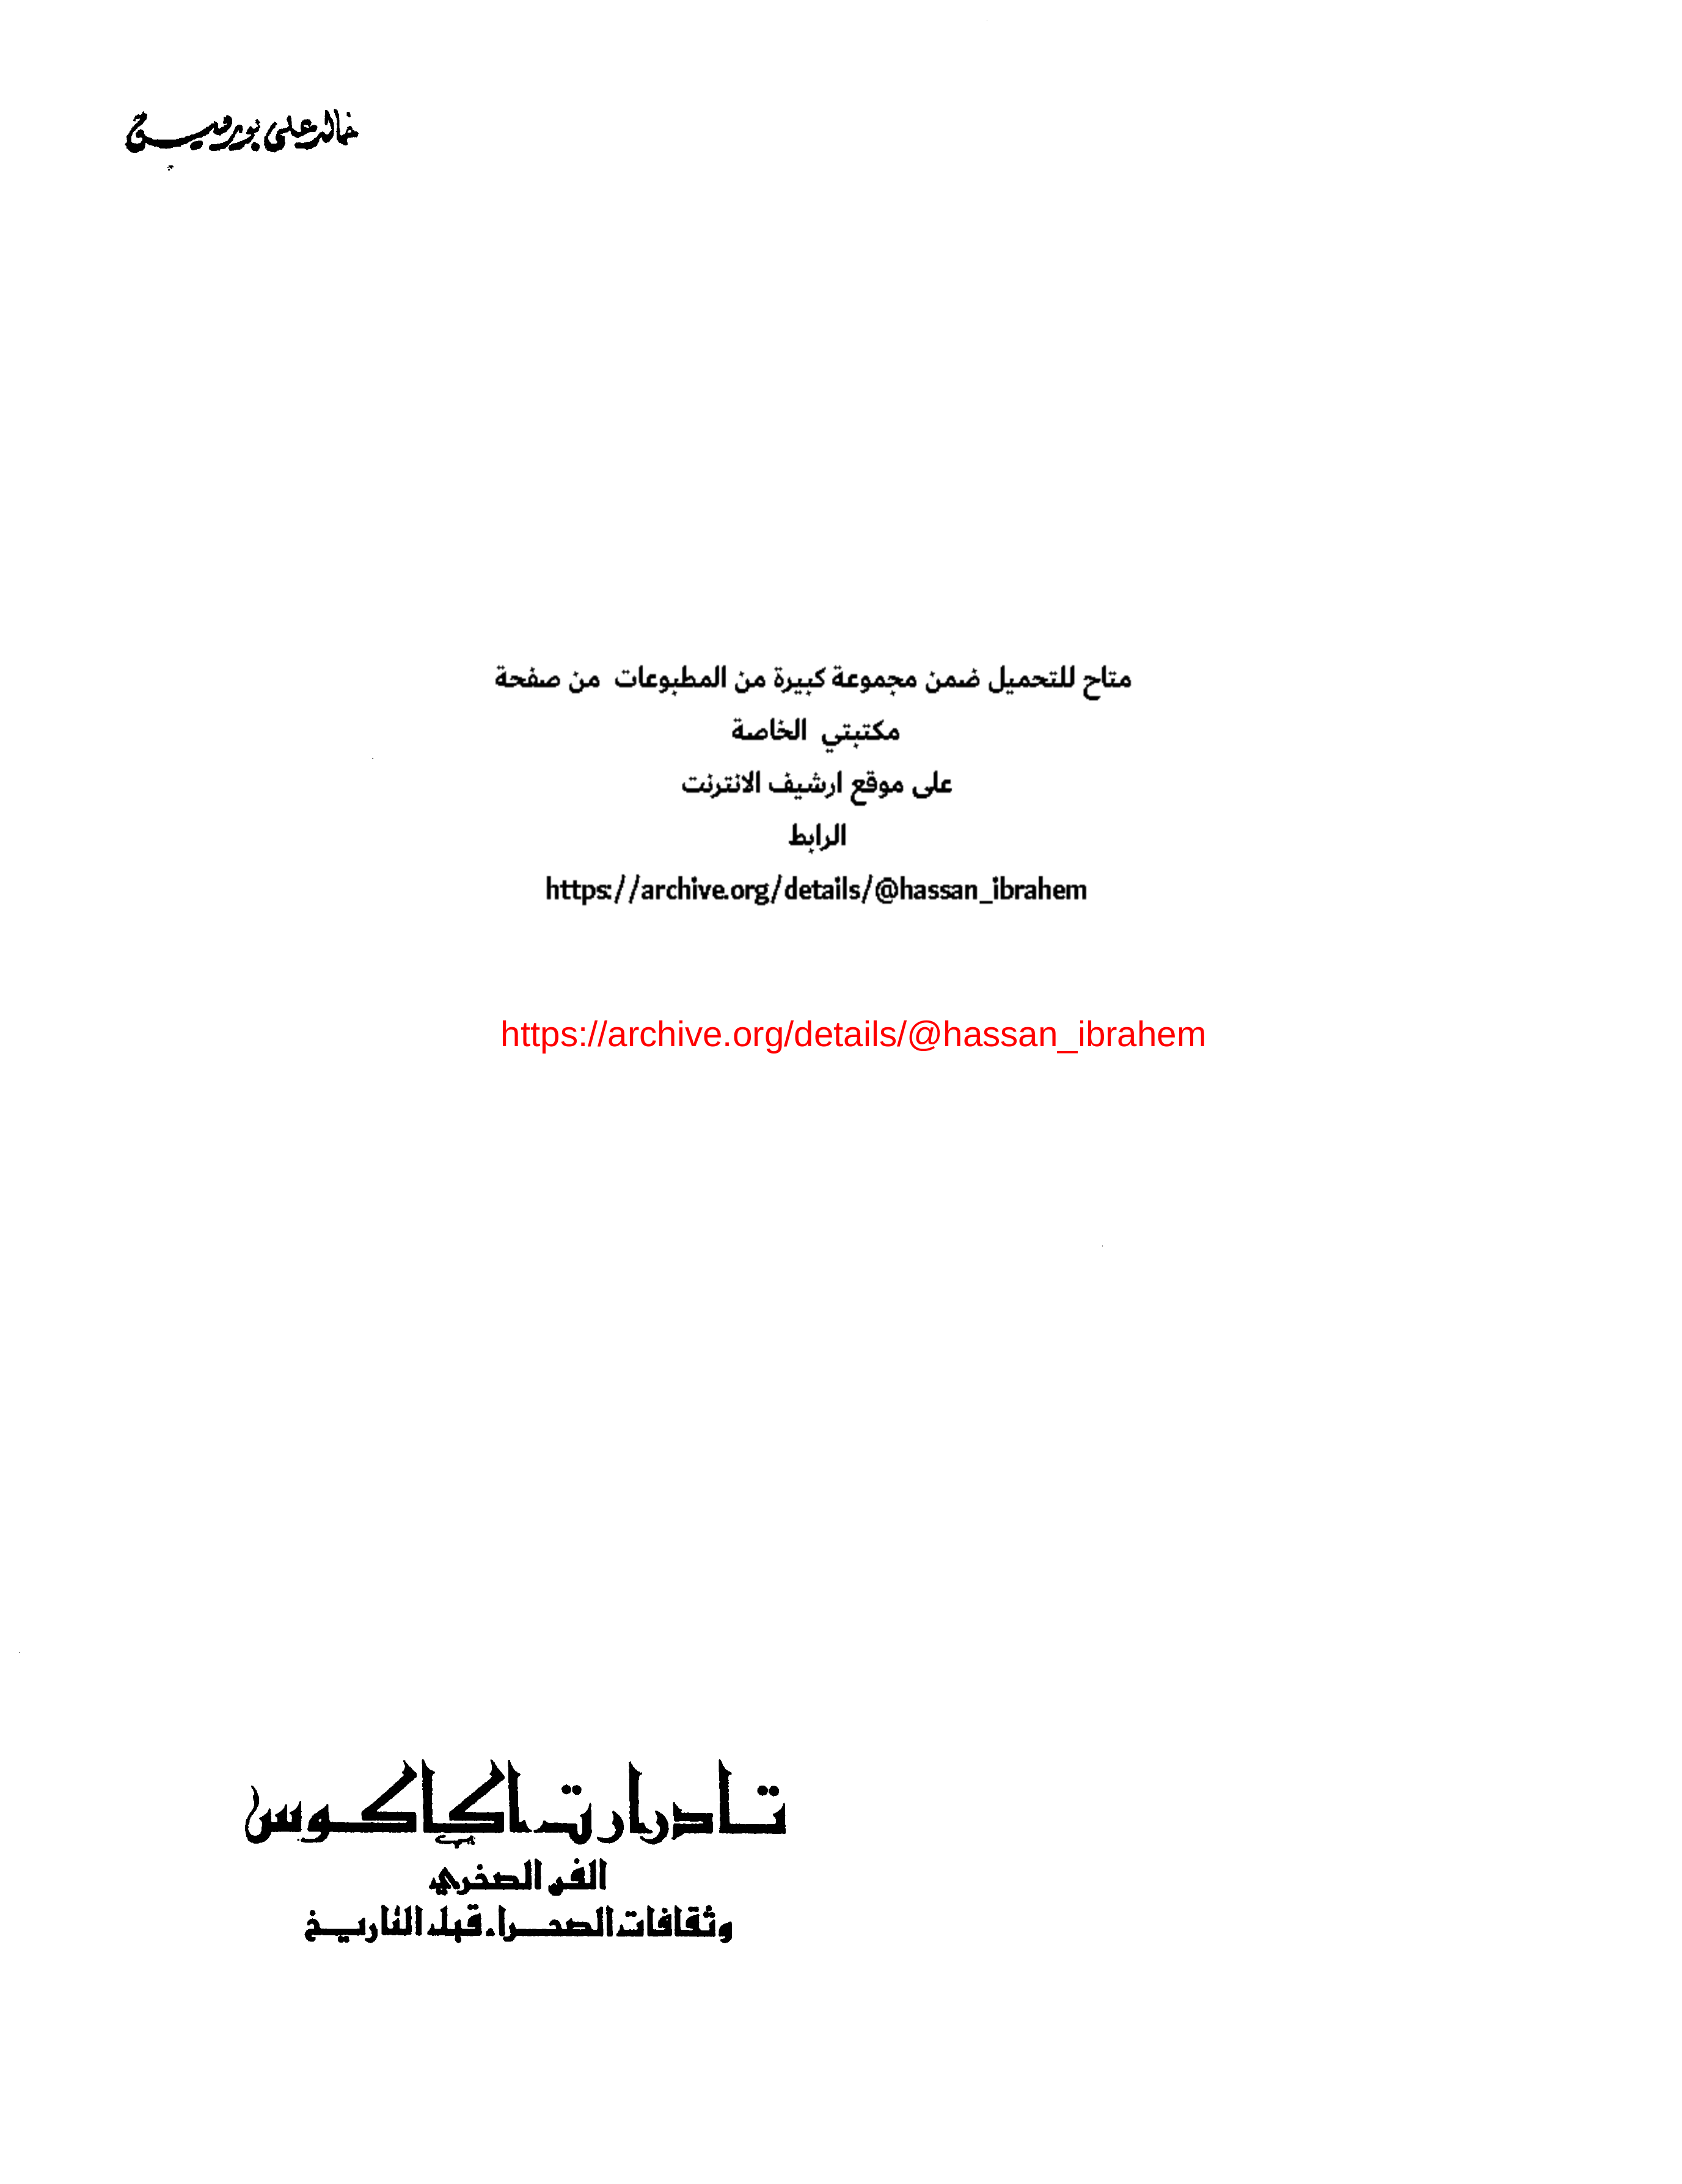 خالد علي بورقيبح
متاح للتحميل ضمن مجموعة كبيرة من المطبوعات من صفحة
مكتبتي الخاصة
على موقع ارشيف الانترنت
الرابط
https://archive.org/details/@hassan_ibrahem
https://archive.org/details/@hassan_ibrahem
تادرارت اكاكوس
الفن الصخري
وثقافات الصحراء قبل التاريخ